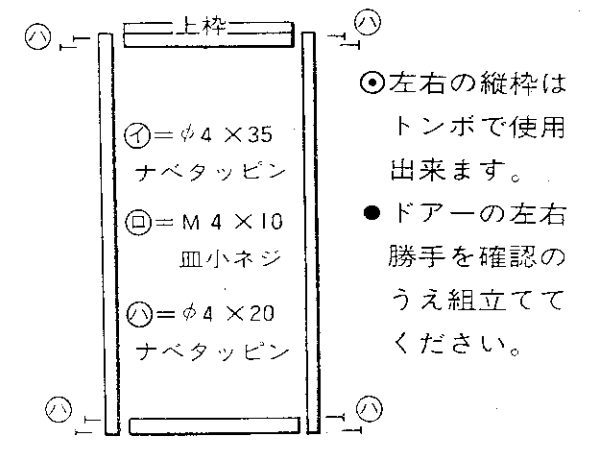 上枠
㋩
㋩
㋑＝φ4×35
ナベタッピン
㋺＝M4×10
皿小ネジ
㋩＝φ4×20
ナベタッピン
㋩
㋩
⦿左右の縦枠は
トンボで使用
出来ます。
●ドアーの左右
勝手を確認の
うえ組立てて
ください。